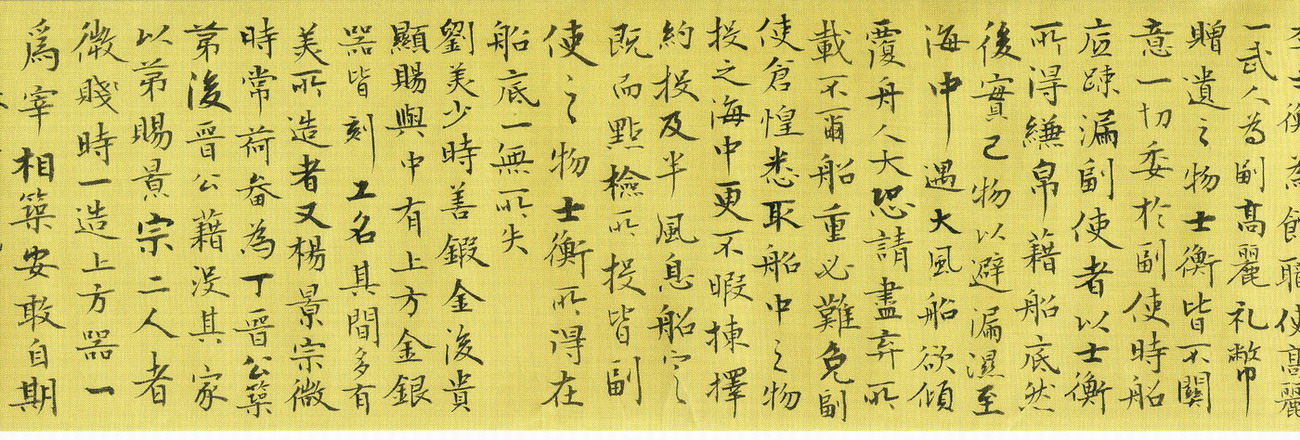 士衡為館職使高麗
一武人為副高麗礼幣
贈遺之物士衡皆不關
意一切委於副使時船
底疎漏副使者以士衡
所得縑帛藉船底然
後實己物以避漏濕至
海中遇大風船欲傾
覆舟人大恐請盡弃所
載不爾船重必難免副
使倉惶悉取船中之物
投之海中更不暇揀擇
約投及半風息船定
既而點檢所投皆副
使之物士衡所得在
船底一無所失
劉美少時善鍛金後貴
顯賜與中有上方金銀
器皆刻工名其間多有
美所造者又楊景宗微
時常荷畚為丁晉公築
苐後晉公藉沒其家
以苐賜景宗二人者
微賤時一造上方器一
為宰相築安敢自期